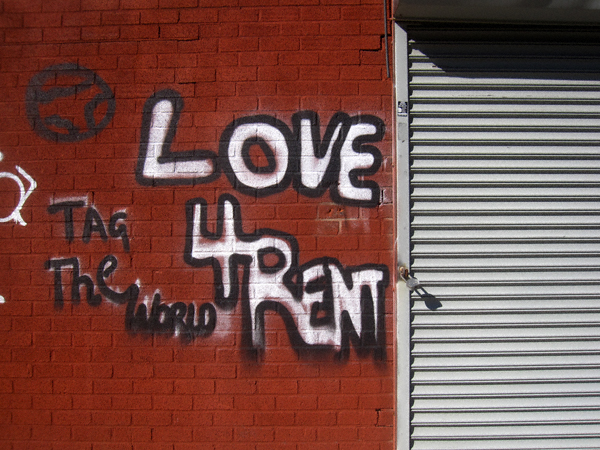 LOVE
4 RENT
TAG
The
WORLD